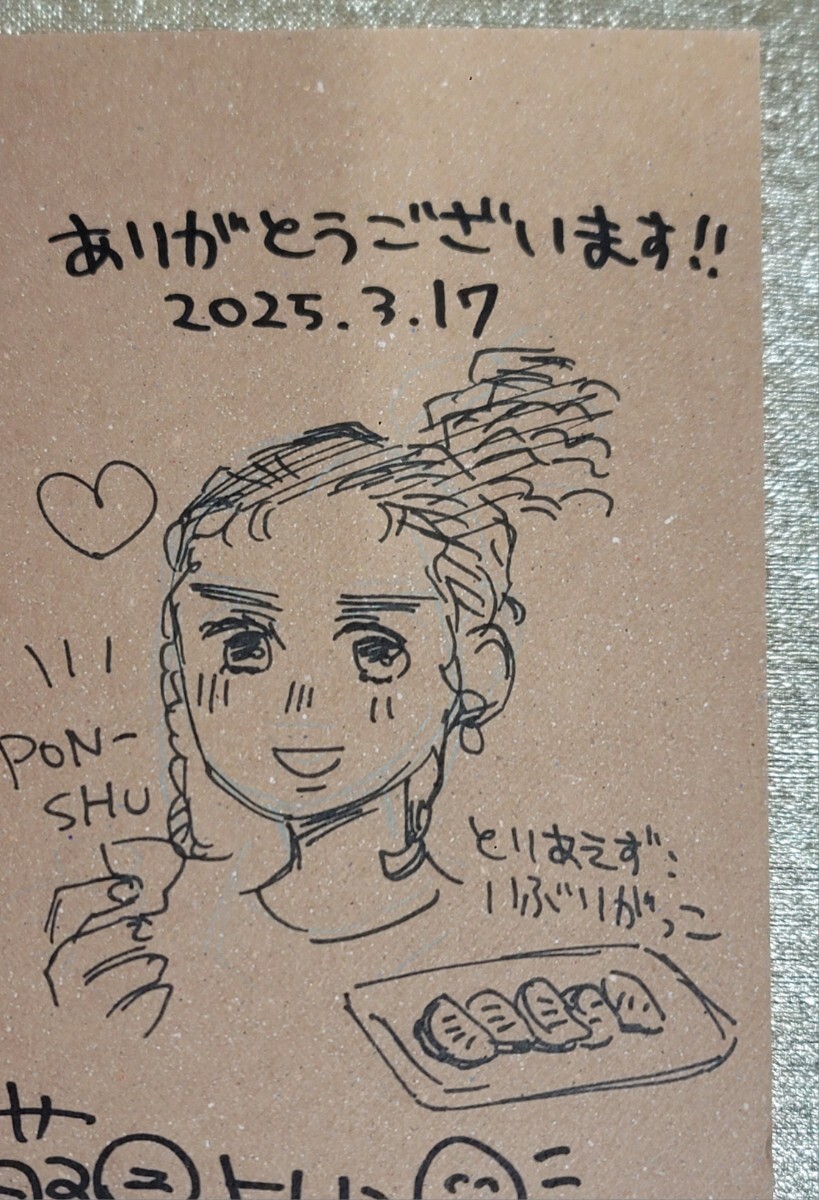 ありがとうございます!!
2025.3.17
PON-
SHU
とりあえず:
いぶりがっこ